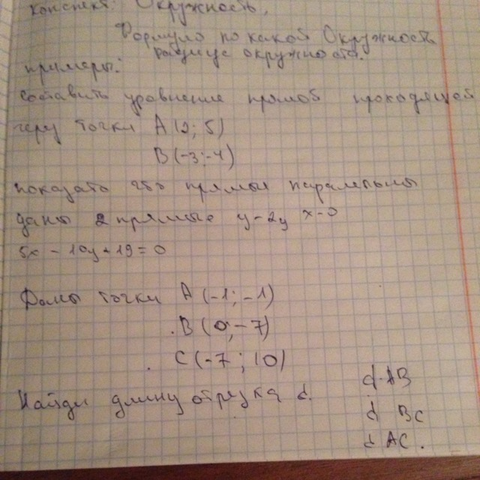 конспект: Окружность.
Формула по какой Окружность
радиус окружности.
примеры:
составить уравнение прямой проходящей
через точки A(2; 5)
B(-3; -4)
показать что прямые параллельны
даны 2 прямые y-2y x-0
5x - 10y + 19 = 0
Даны точки A(-1; -1)
B(0; -7)
C(-7; 10)
Найди длину отрезка d.
d AB
d BC
d AC.